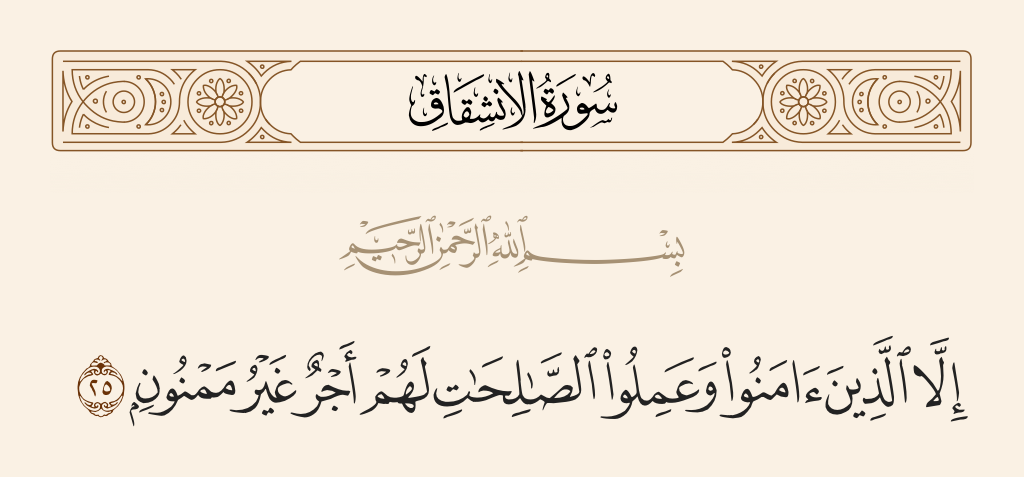 سُورَةُ الانشِقَاقِ
بِسْمِ ٱللَّهِ ٱلرَّحْمَٰنِ ٱلرَّحِيمِ
إِلَّا ٱلَّذِينَ ءَامَنُوا۟ وَعَمِلُوا۟ ٱلصَّـٰلِحَـٰتِ لَهُمْ أَجْرٌ غَيْرُ مَمْنُونٍۭ ٢٥